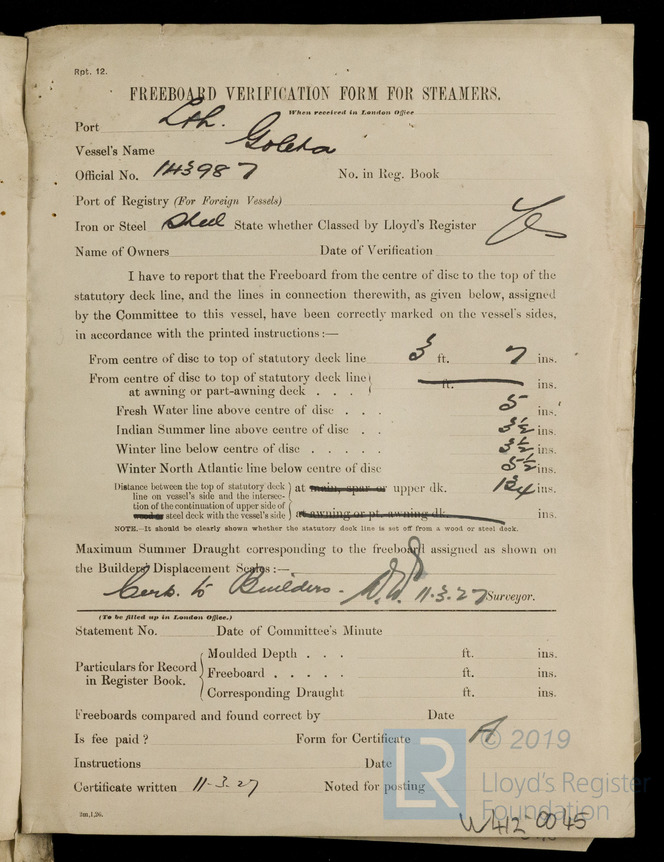 Rpt. 12.
FREEBOARD VERIFICATION FORM FOR STEAMERS.
When received in London Office
Port Lth.
Vessel's Name Goleta
Official No. 143987 No. in Reg. Book
Port of Registry (For Foreign Vessels)
Iron or Steel Steel State whether Classed by Lloyd's Register Yes
Name of Owners Date of Verification
I have to report that the Freeboard from the centre of disc to the top of the
statutory deck line, and the lines in connection therewith, as given below, assigned
by the Committee to this vessel, have been correctly marked on the vessel's sides,
in accordance with the printed instructions:—
From centre of disc to top of statutory deck line 3 ft. 7 ins.
From centre of disc to top of statutory deck line
at awning or part-awning deck . . . ft. ins.
Fresh Water line above centre of disc . . 5 ins.
Indian Summer line above centre of disc . . 3½ ins.
Winter line below centre of disc . . . . . 3½ ins.
Winter North Atlantic line below centre of disc 5½ ins.
Distance between the top of statutory deck
line on vessel's side and the intersec-
tion of the continuation of upper side of
wood or steel deck with the vessel's side
at main, spar or upper dk. 1¾ ins.
at awning or pt. awning dk. ins.
NOTE.—It should be clearly shown whether the statutory deck line is set off from a wood or steel deck.
Maximum Summer Draught corresponding to the freeboard assigned as shown on
the Builders' Displacement Scales:—
Cert. to Builders. 11.3.27 Surveyor.
(To be filled up in London Office.)
Statement No. Date of Committee's Minute
Particulars for Record
in Register Book.
Moulded Depth . . . ft. ins.
Freeboard . . . . . ft. ins.
Corresponding Draught ft. ins.
Freeboards compared and found correct by Date
Is fee paid? Form for Certificate A
Instructions Date
Certificate written 11-3-27 Noted for posting
2m,1,26.
LR
© 2019
Lloyd's Register
Foundation
W412-0045